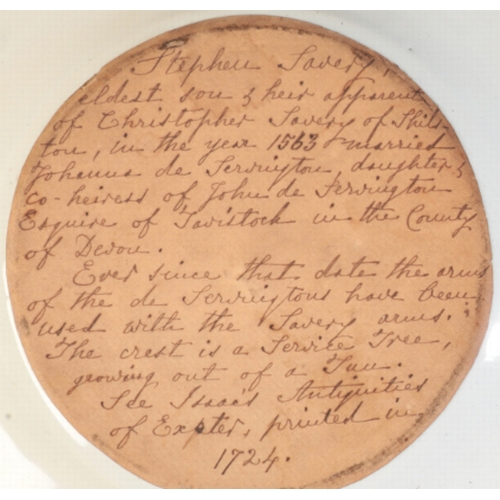 Stephen Savery,
eldest son & heir apparent
of Christopher Savery of Shils-
ton, in the year 1563 married
Johanna de Servington, daughter &
co-heiress of John de Servington
Esquire of Tavistock in the County
of Devon.
Ever since that date the arms
of the de Servingtons have been
used with the Savery arms.
The crest is a Service Tree,
growing out of a Tun.
See Isaac's Antiquities
of Exeter, printed in
1724.